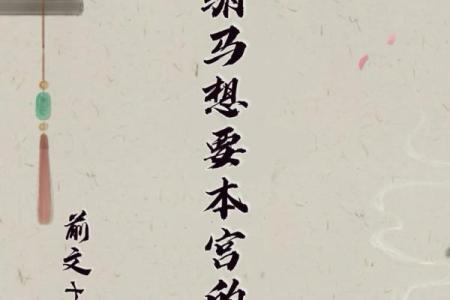 马想要本宫的
前文